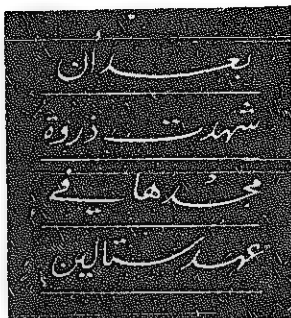 بعد أن
شهدت ذروة
مجدها في
عهد ستالين